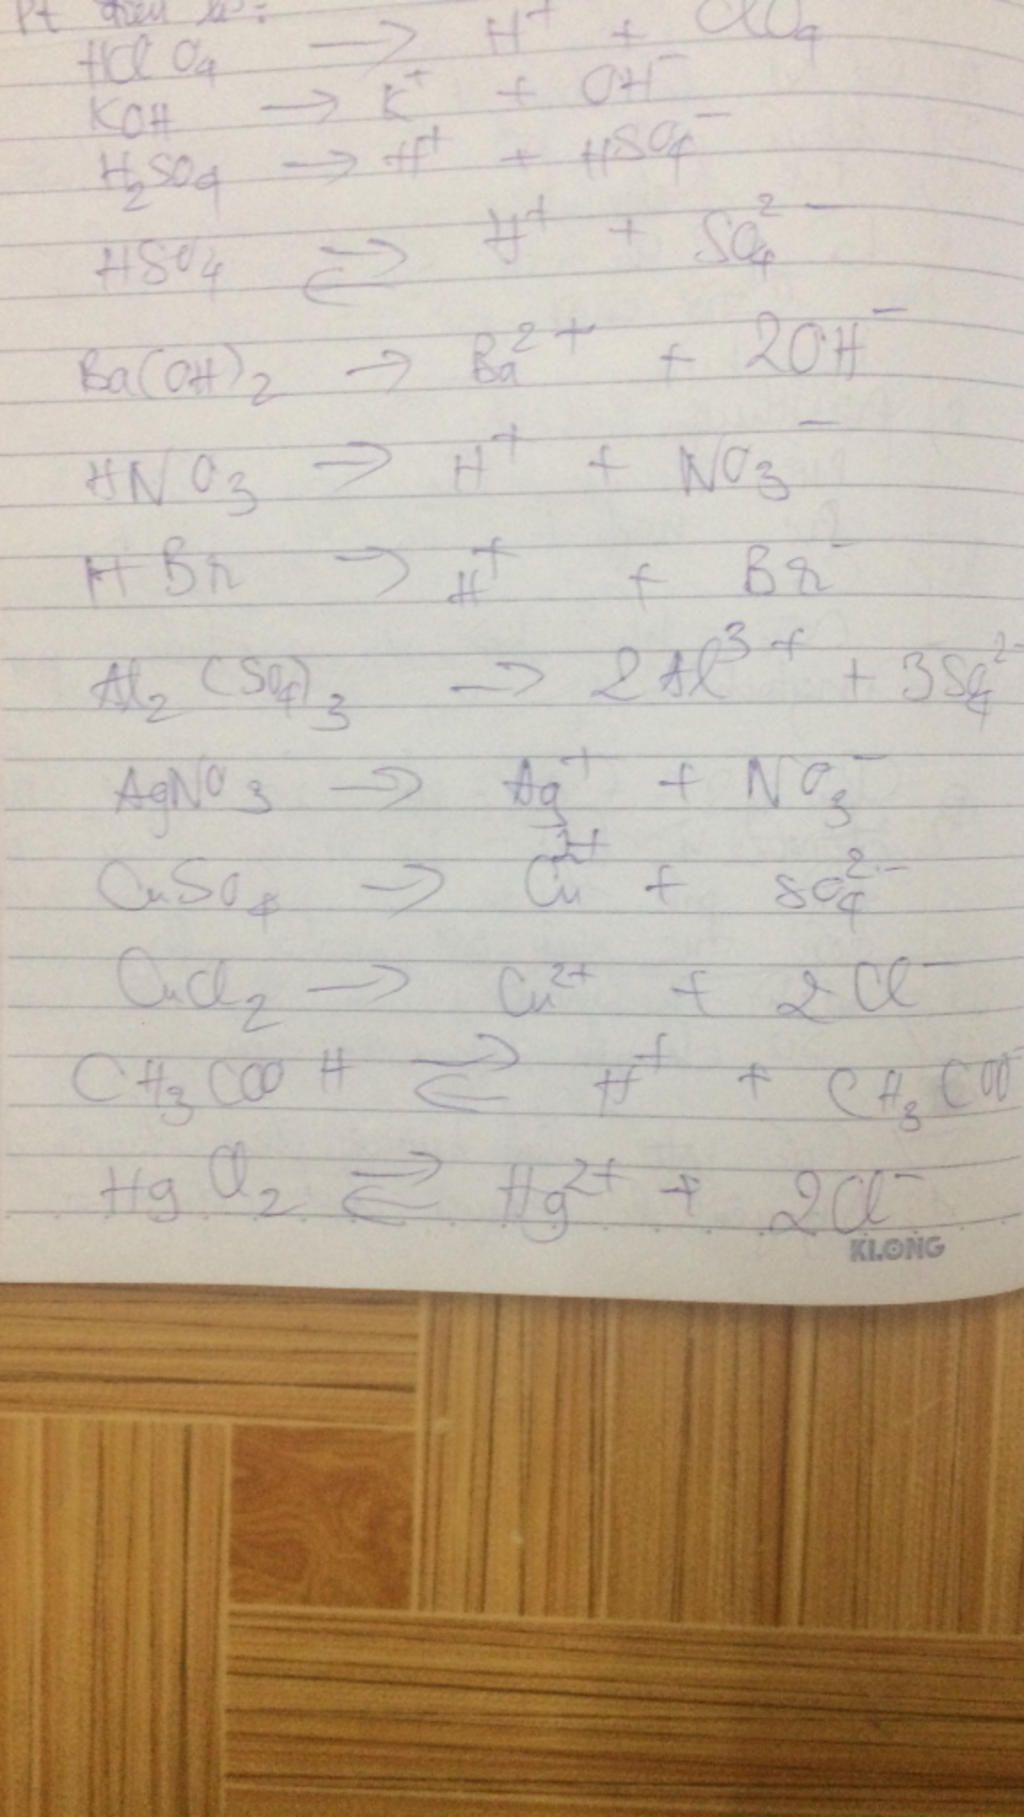 Pt điện li:
HClO₄ → H⁺ + ClO₄
KOH → K⁺ + OH⁻
H₂SO₄ → H⁺ + HSO₄⁻
HSO₄ ⇌ H⁺ + SO₄²⁻
Ba(OH)₂ → Ba²⁺ + 2OH⁻
HNO₃ → H⁺ + NO₃⁻
HBr → H⁺ + Br⁻
Al₂(SO₄)₃ → 2Al³⁺ + 3SO₄²⁻
AgNO₃ → Ag⁺ + NO₃⁻
CuSO₄ → Cu²⁺ + SO₄²⁻
CuCl₂ → Cu²⁺ + 2Cl⁻
CH₃COOH ⇌ H⁺ + CH₃COO⁻
HgCl₂ ⇌ Hg²⁺ + 2Cl⁻
KLONG